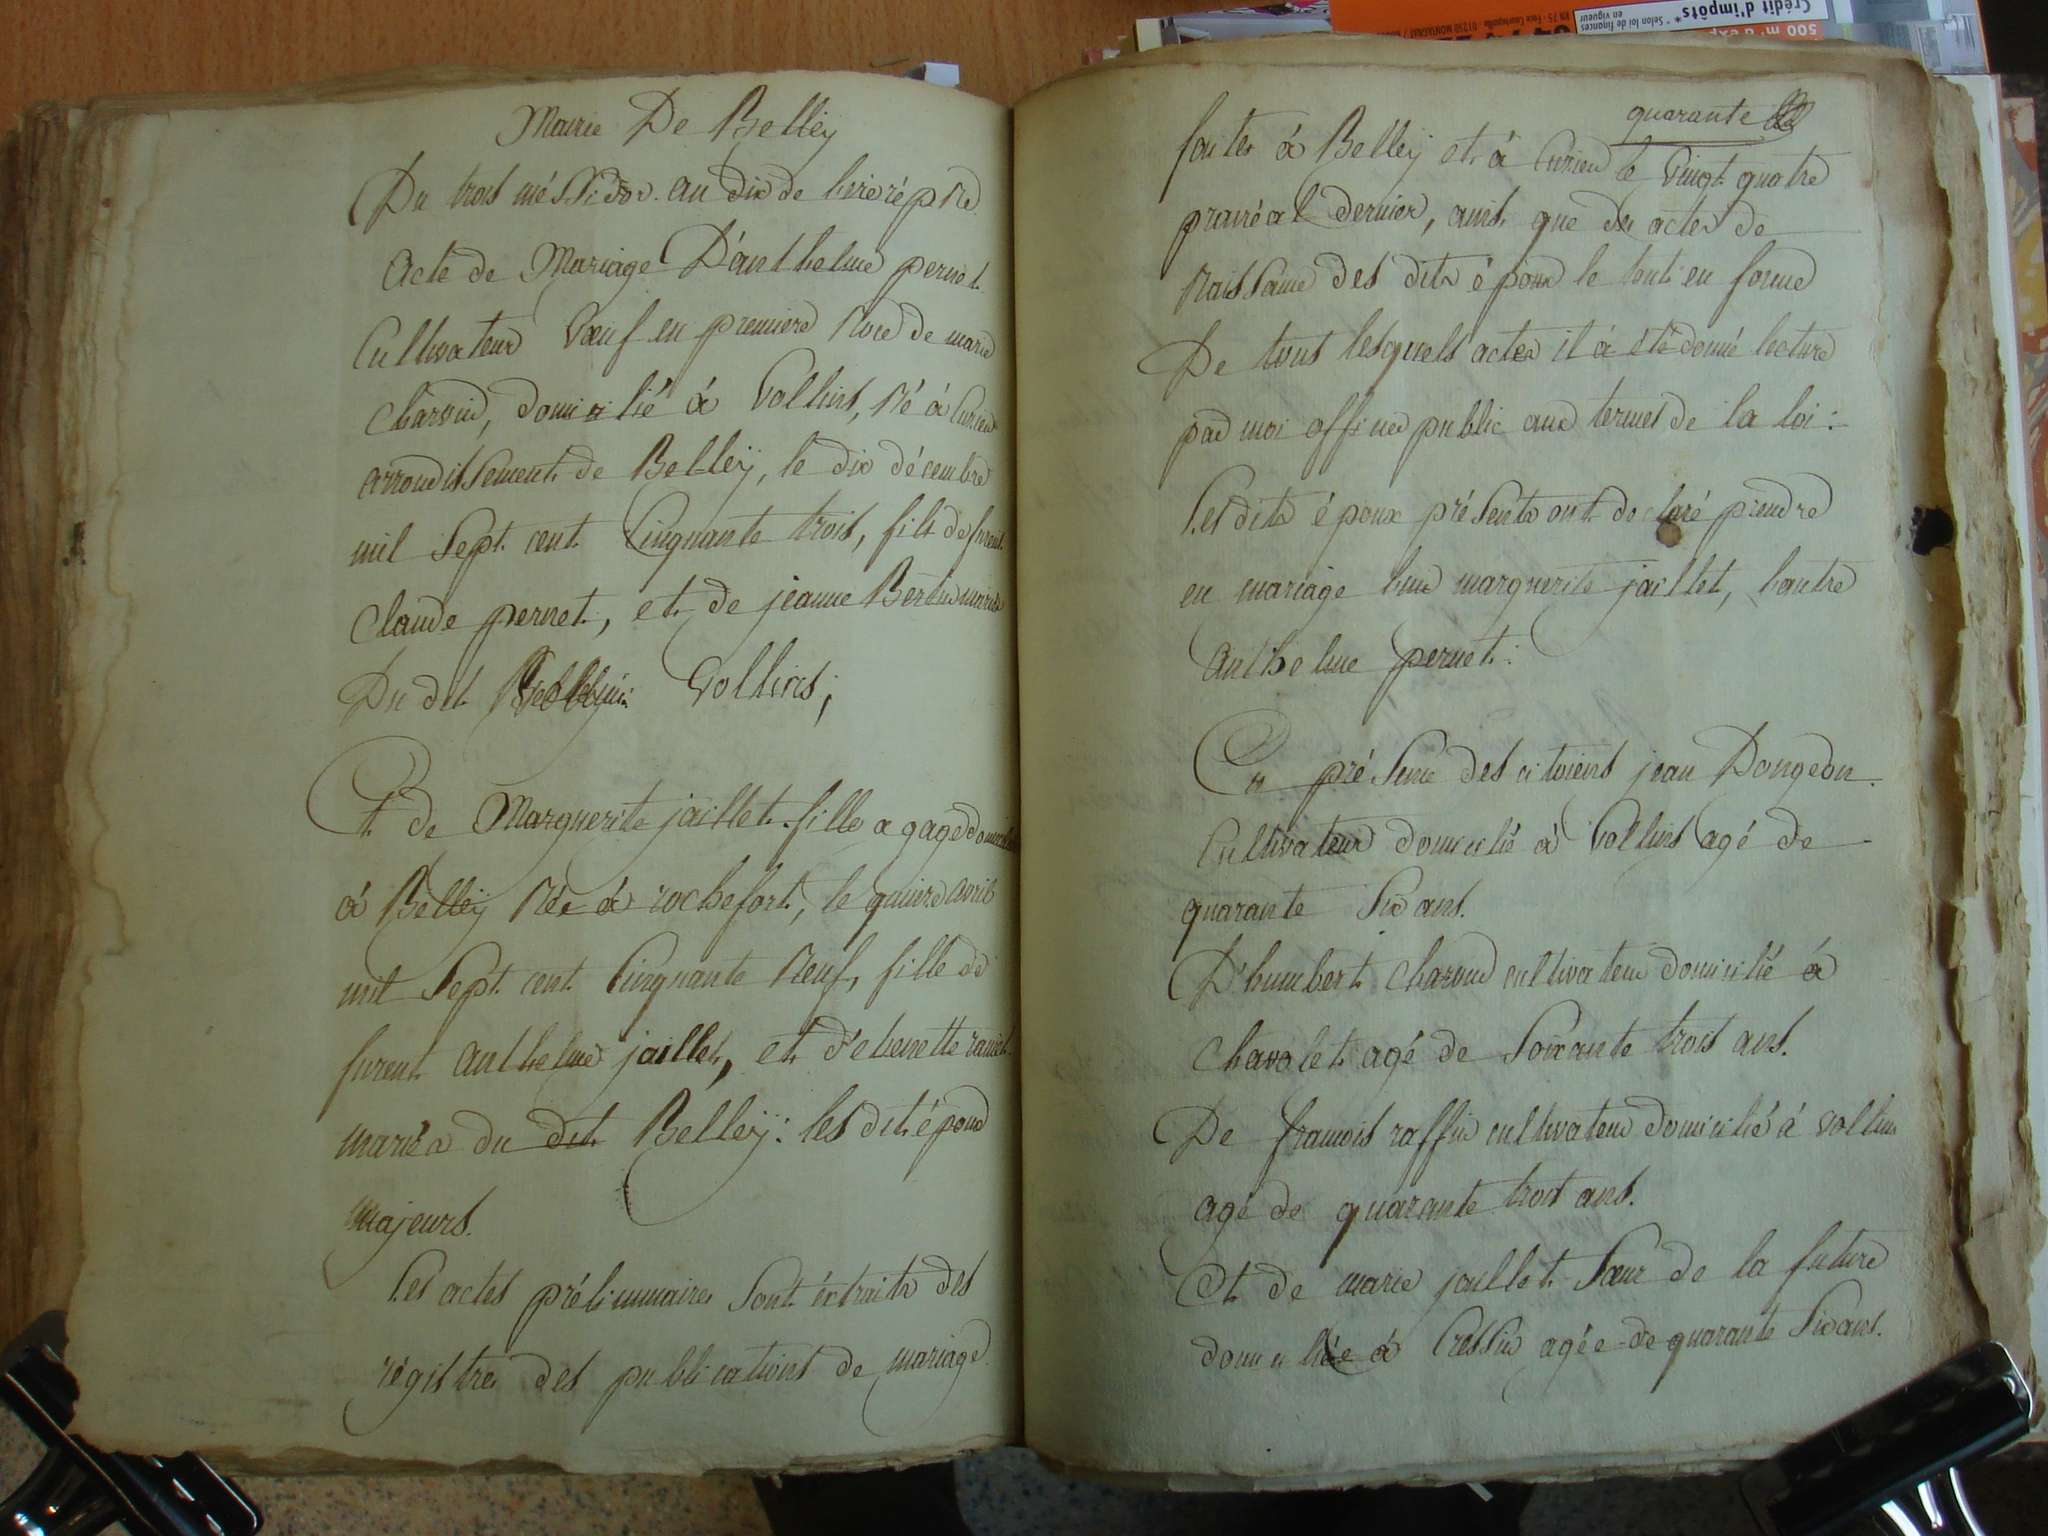 Mairie De Belleÿ
Du trois méssidor an dix de l'ere répne
Acte de Mariage D'anthelme pernet
Cultivateur Vœuf en premiere Noce de marie
Charvin, domicilié á Vollins, Né á Curien
arrondissement de Belleÿ, le dix décembre
mil Sept cent Cinquante trois, fils de furent
Claude pernet, et de jeanne Bertin mariés
Du dit Vollins;
Et de Marguerite jaillet fille a gage domiciliée
á Belleÿ Née á rochefort, le quinze avril
mil Sept cent Cinquante Neuf, fille de
furent anthelme jaillet, et d'ebenette
mariés du dit Belleÿ: les dit époux
majeurs.
Les actes préliminaires Sont éxtraits des
régistres des publications de mariage
quarante
faites á Belleÿ et á Curien le Vingt quatre
prairéal dernier, ainsi que des actes de
Naissance des dits époux le tout en forme
De tous lesquels actes il á été donné lecture
par moi officier public aux termes de la loi:
Les dits époux présents ont declaré prendre
en mariage l'un marguerite jaillet, l'autre
anthelme pernet:
En présence des citoiens jean Dongeon
Cultivateur domicilié á Vollins agé de
quarante Six ans.
D'humbert Charvin cultivateur domicilié á
Chavolet agé de Soixante trois ans.
De francois raffin cultivateur domicilié á vollins
agé de quarante trois ans.
Et de marie jaillet Sœur de la future
domiciliée á Cressin agée de quarante Six ans.
Crédit d'impôts
* Selon loi de finances
en vigueur